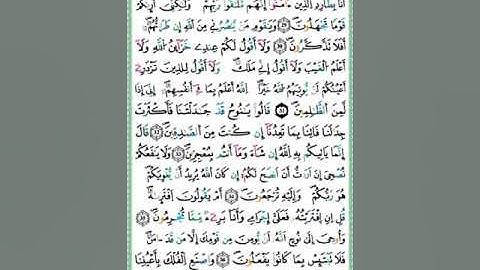 أَنَا بِطَارِدِ الذِينَ ءَامَنُوا إِنَّهُم مُّلَٰقُوا رَبِّهِمْ وَلَٰكِنِّيَ أَرَىٰكُمْ
قَوْمًا تَجْهَلُونَ وَيَٰقَوْمِ مَنْ يَّنصُرُنِي مِنَ اَللَّهِ إِن طَرَدتُّهُمُ
أَفَلَا تَذَّكَّرُونَ وَلَا أَقُولُ لَكُمْ عِندِي خَزَائِنُ اُللَّهِ وَلَا
أَعْلَمُ الْغَيْبَ وَلَا أَقُولُ إِنِّي مَلَكٌ وَلَا أَقُولُ لِلذِينَ تَزْدَرِي
أَعْيُنُكُمْ لَنْ يُّوتِيَهُمُ اُللَّهُ خَيْرًا اِللَّهُ أَعْلَمُ بِمَا فِي أَنفُسِهِمُ إِنِّيَ إِذًا
لَّمِنَ اَلظَّٰلِمِينَ قَالُوا يَٰنُوحُ قَدْ جَٰدَلْتَنَا فَأَكْثَرْتَ
جِدَٰلَنَا فَاتِنَا بِمَا تَعِدُنَا إِن كُنتَ مِنَ اَلصَّٰدِقِينَ قَالَ
إِنَّمَا يَاتِيكُم بِهِ اِللَّهُ إِن شَاءَ وَمَا أَنتُم بِمُعْجِزِينَ وَلَا يَنفَعُكُمْ
نُصْحِيَ إِنْ أَرَدتُّ أَنْ أَنصَحَ لَكُمُ إِن كَانَ اَللَّهُ يُرِيدُ أَنْ يُّغْوِيَكُمْ
هُوَ رَبُّكُمْ وَإِلَيْهِ تُرْجَعُونَ أَمْ يَقُولُونَ اَفْتَرَىٰهُ
قُلِ اِنِ اِفْتَرَيْتُهُ فَعَلَيَّ إِجْرَامِي وَأَنَا بَرِيءٌ مِّمَّا تُجْرِمُونَ
وَأُوحِيَ إِلَىٰ نُوحٍ أَنَّهُ لَنْ يُّومِنَ مِن قَوْمِكَ إِلَّا مَن قَدَ اٰمَنَ
فَلَا تَبْتَئِسْ بِمَا كَانُوا يَفْعَلُونَ وَاصْنَعِ اِلْفُلْكَ بِأَعْيُنِنَا